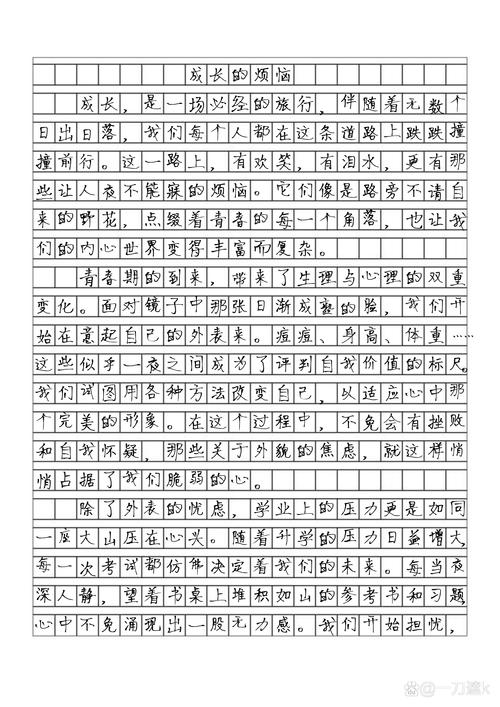 成长的烦恼
成长，是一场必经的旅行，伴随着无数个
日出日落，我们每个人都在这条道路上跌跌撞
撞前行。这一路上，有欢笑，有泪水，更有那
些让人夜不能寐的烦恼。它们像是路旁不请自
来的野花，点缀着青春的每一个角落，也让我
们的内心世界变得丰富而复杂。
青春期的到来，带来了生理与心理的双重
变化。面对镜子中那张日渐成熟的脸，我们开
始在意起自己的外表来。痘痘、身高、体重……
这些似乎一夜之间成为了评判自我价值的标尺。
我们试图用各种方法改变自己，以适应心中那
个完美的形象。在这个过程中，不免会有挫败
和自我怀疑，那些关于外貌的焦虑，就这样悄
悄占据了我们脆弱的心。
除了外表的忧虑，学业上的压力更是如同
一座大山压在心头。随着升学的压力日益增大，
每一次考试都仿佛决定着我们的未来。每当夜
深人静，望着书桌上堆积如山的参考书和习题，
心中不免涌现出一股无力感。我们开始担忧，
一刀谨k